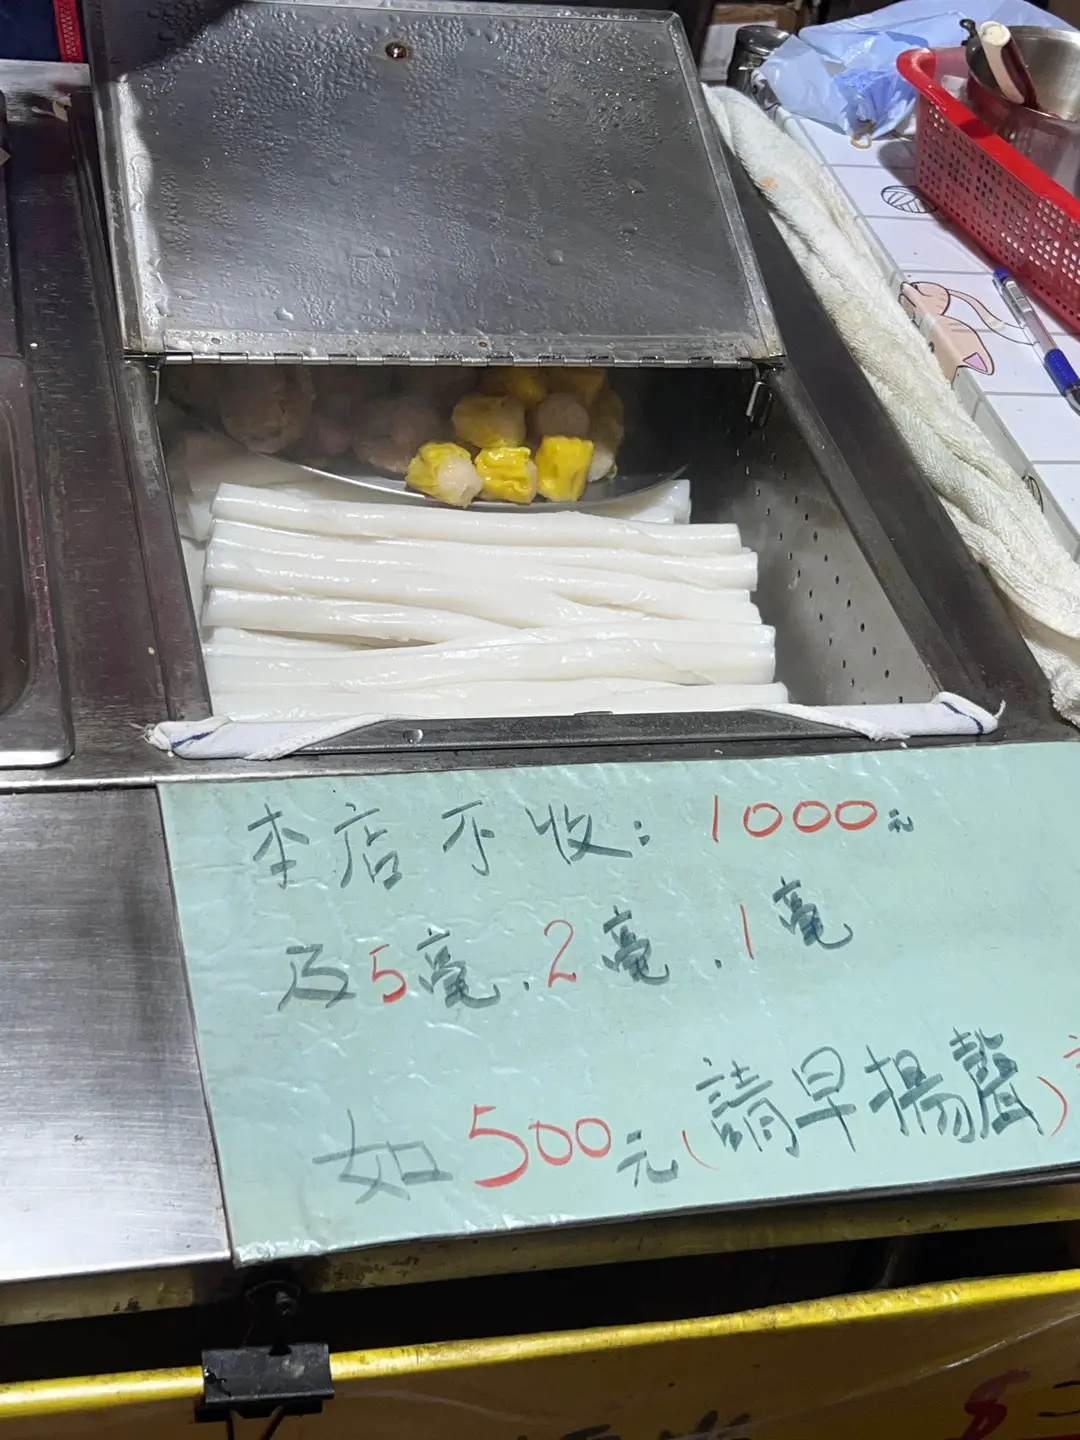 本店不收：1000元
及5毫．2毫．1毫
如500元(請早揚聲)
8